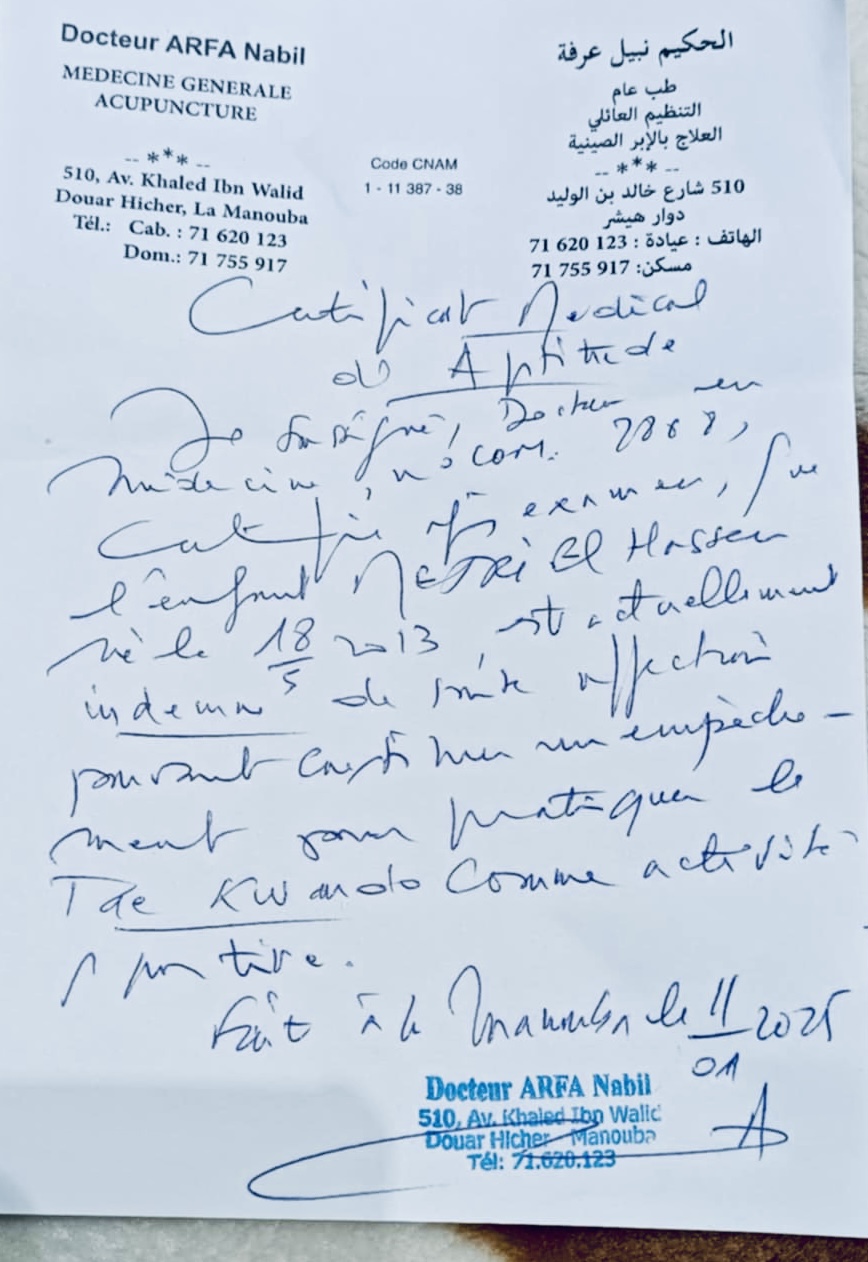 Docteur ARFA Nabil
MEDECINE GENERALE
ACUPUNCTURE
-- *** --
510, Av. Khaled Ibn Walid
Douar Hicher, La Manouba
Tél.: Cab. : 71 620 123
Dom.: 71 755 917
Code CNAM
1 - 11 387 - 38
الحكيم نبيل عرفة
طب عام
التنظيم العائلي
العلاج بالإبر الصينية
-- *** --
510 شارع خالد بن الوليد
دوار هيشر
الهاتف : عيادة : 123 620 71
مسكن: 917 755 71
Certificat Medical
d'Aptitude
Je soussigné, Docteur en
médecine, n° com.
Certifie après examen, que
l'enfant El Hassen
né le 18/5 2013, est actuellement
indemne de toute affection
pouvant constituer un empêche-
ment pour pratiquer le
Tae Kwando comme activité
sportive.
Fait à la Manouba le 11/01 2025
Docteur ARFA Nabil
510, Av. Khaled Ibn Walid
Douar Hicher Manouba
Tél: 71.620.123